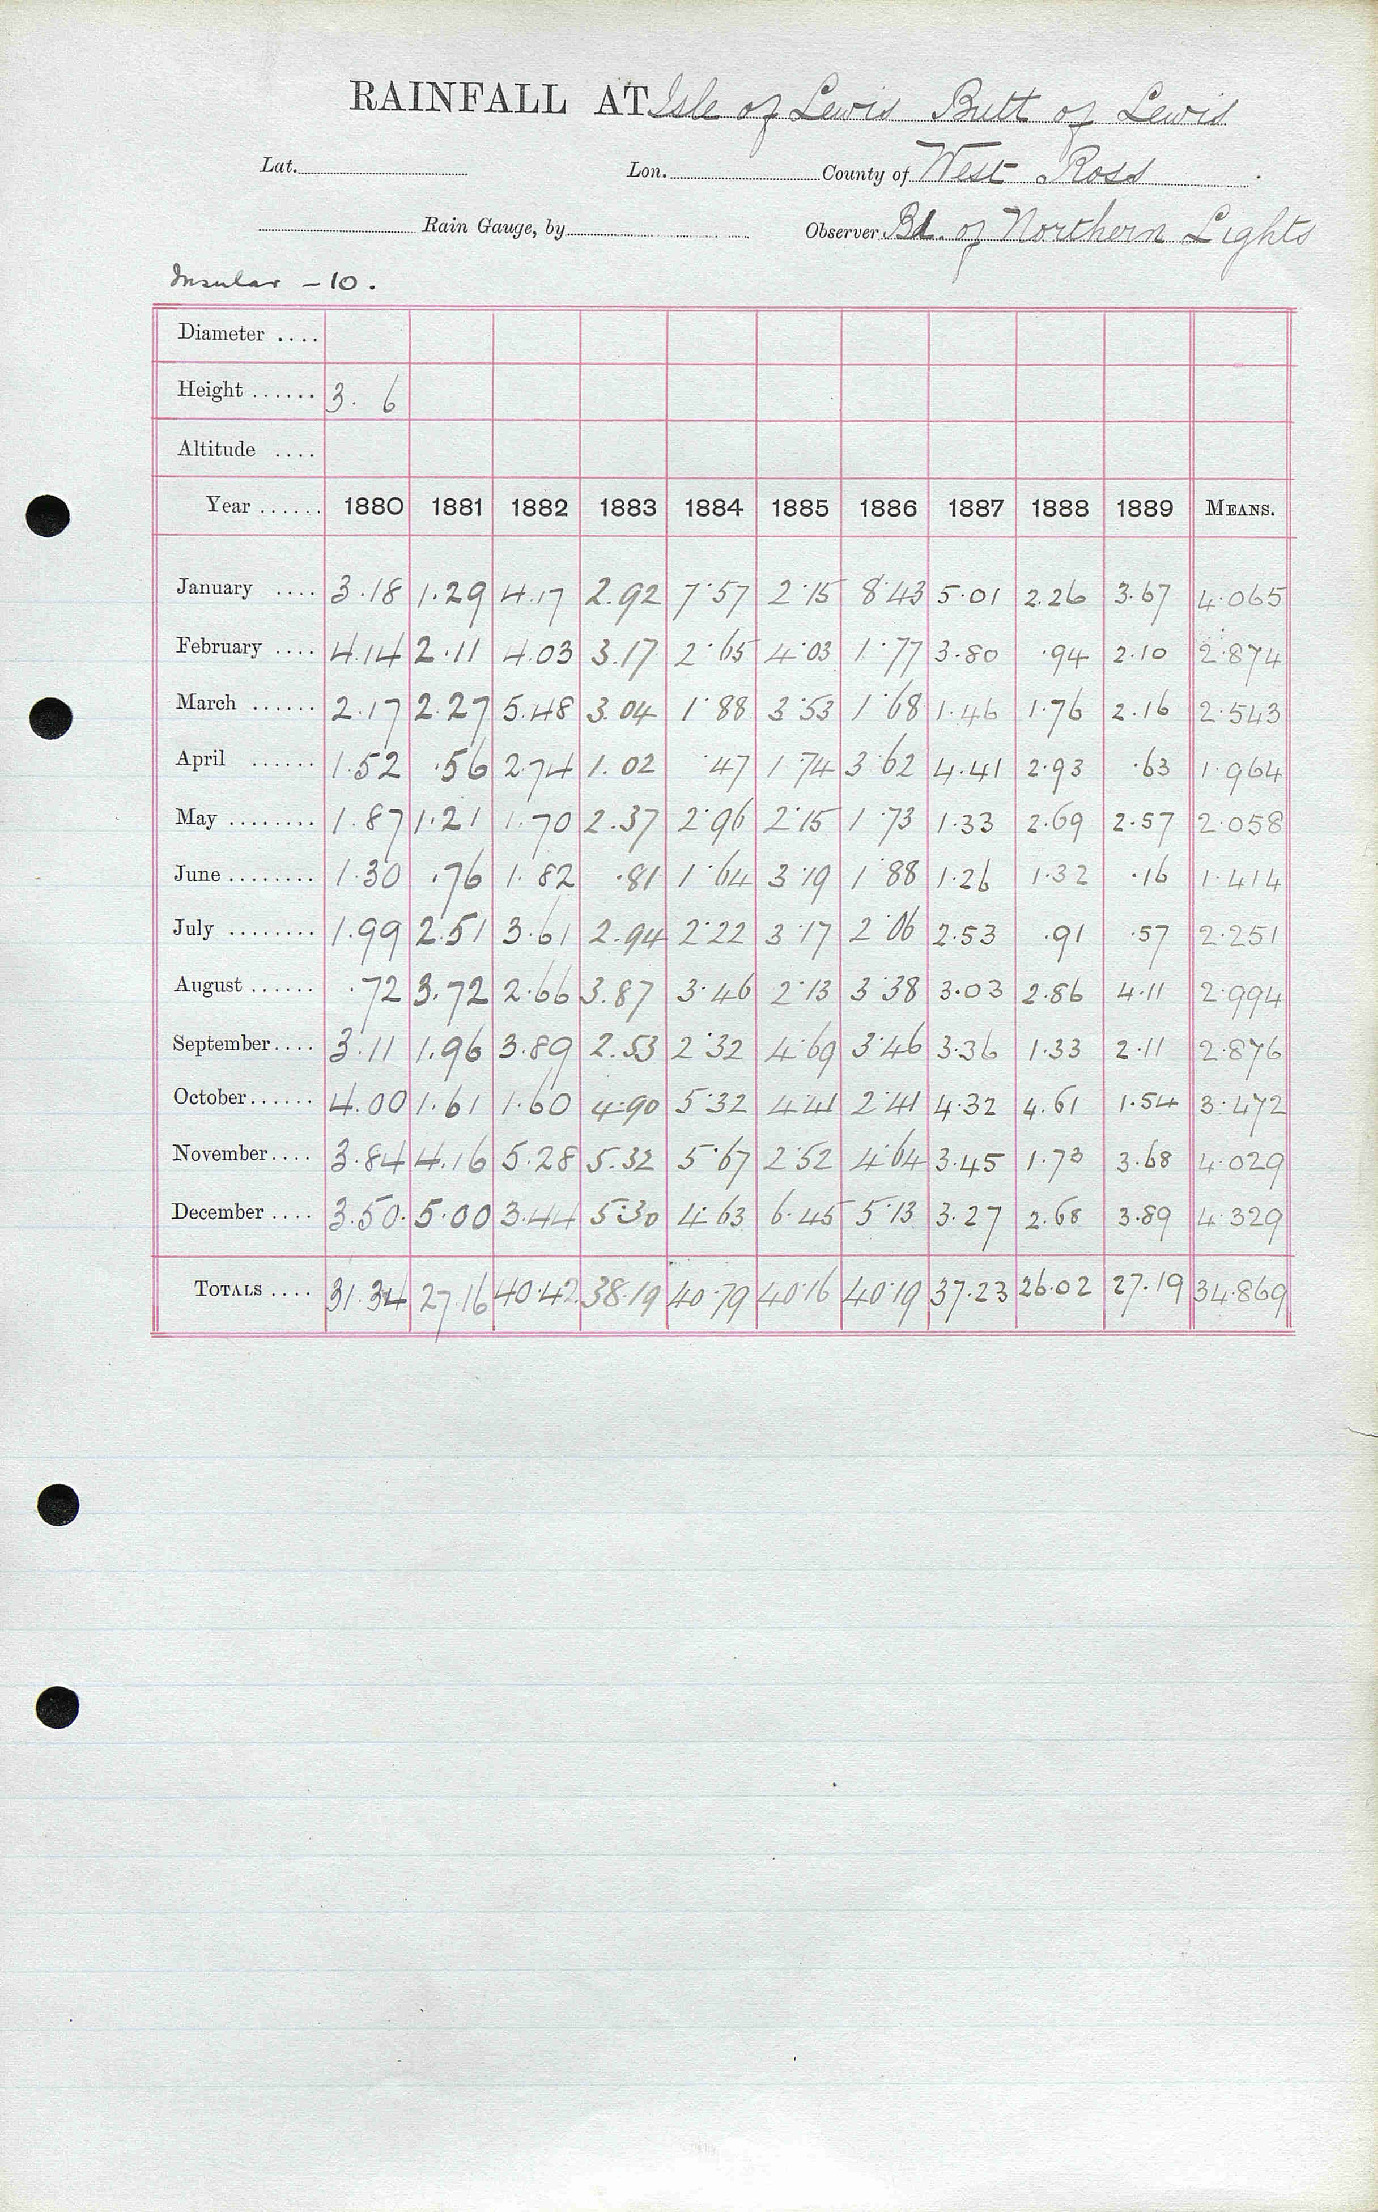 RAINFALL AT Isle of Lewis Butt of Lewis
Lat. Lon. County of West Ross
Rain Gauge, by Observer Bd. of Northern Lights
Insular - 10.
Diameter ....
Height ...... 3. 6
Altitude ....
Year ...... 1880 1881 1882 1883 1884 1885 1886 1887 1888 1889 MEANS.
January .... 3.18 1.29 4.17 2.92 7.57 2.15 8.43 5.01 2.26 3.67 4.065
February .... 4.14 2.11 4.03 3.17 2.65 4.03 1.77 3.80 .94 2.10 2.874
March ...... 2.17 2.27 5.48 3.04 1.88 3.53 1.68 1.46 1.76 2.16 2.543
April ...... 1.52 .56 2.74 1.02 .47 1.74 3.62 4.41 2.93 .63 1.964
May ........ 1.87 1.21 1.70 2.37 2.96 2.15 1.73 1.33 2.69 2.57 2.058
June ........ 1.30 .76 1.82 .81 1.64 3.19 1.88 1.26 1.32 .16 1.414
July ........ 1.99 2.51 3.61 2.94 2.22 3.17 2.06 2.53 .91 .57 2.251
August ...... .72 3.72 2.66 3.87 3.46 2.13 3.38 3.03 2.86 4.11 2.994
September .... 3.11 1.96 3.89 2.53 2.32 4.69 3.46 3.36 1.33 2.11 2.876
October ...... 4.00 1.61 1.60 4.90 5.32 4.41 2.41 4.32 4.61 1.54 3.472
November .... 3.84 4.16 5.28 5.32 5.67 2.52 4.64 3.45 1.73 3.68 4.029
December .... 3.50. 5.00 3.44 5.30 4.63 6.45 5.13 3.27 2.68 3.89 4.329
TOTALS .... 31.34 27.16 40.42 38.19 40.79 40.16 40.19 37.23 26.02 27.19 34.869